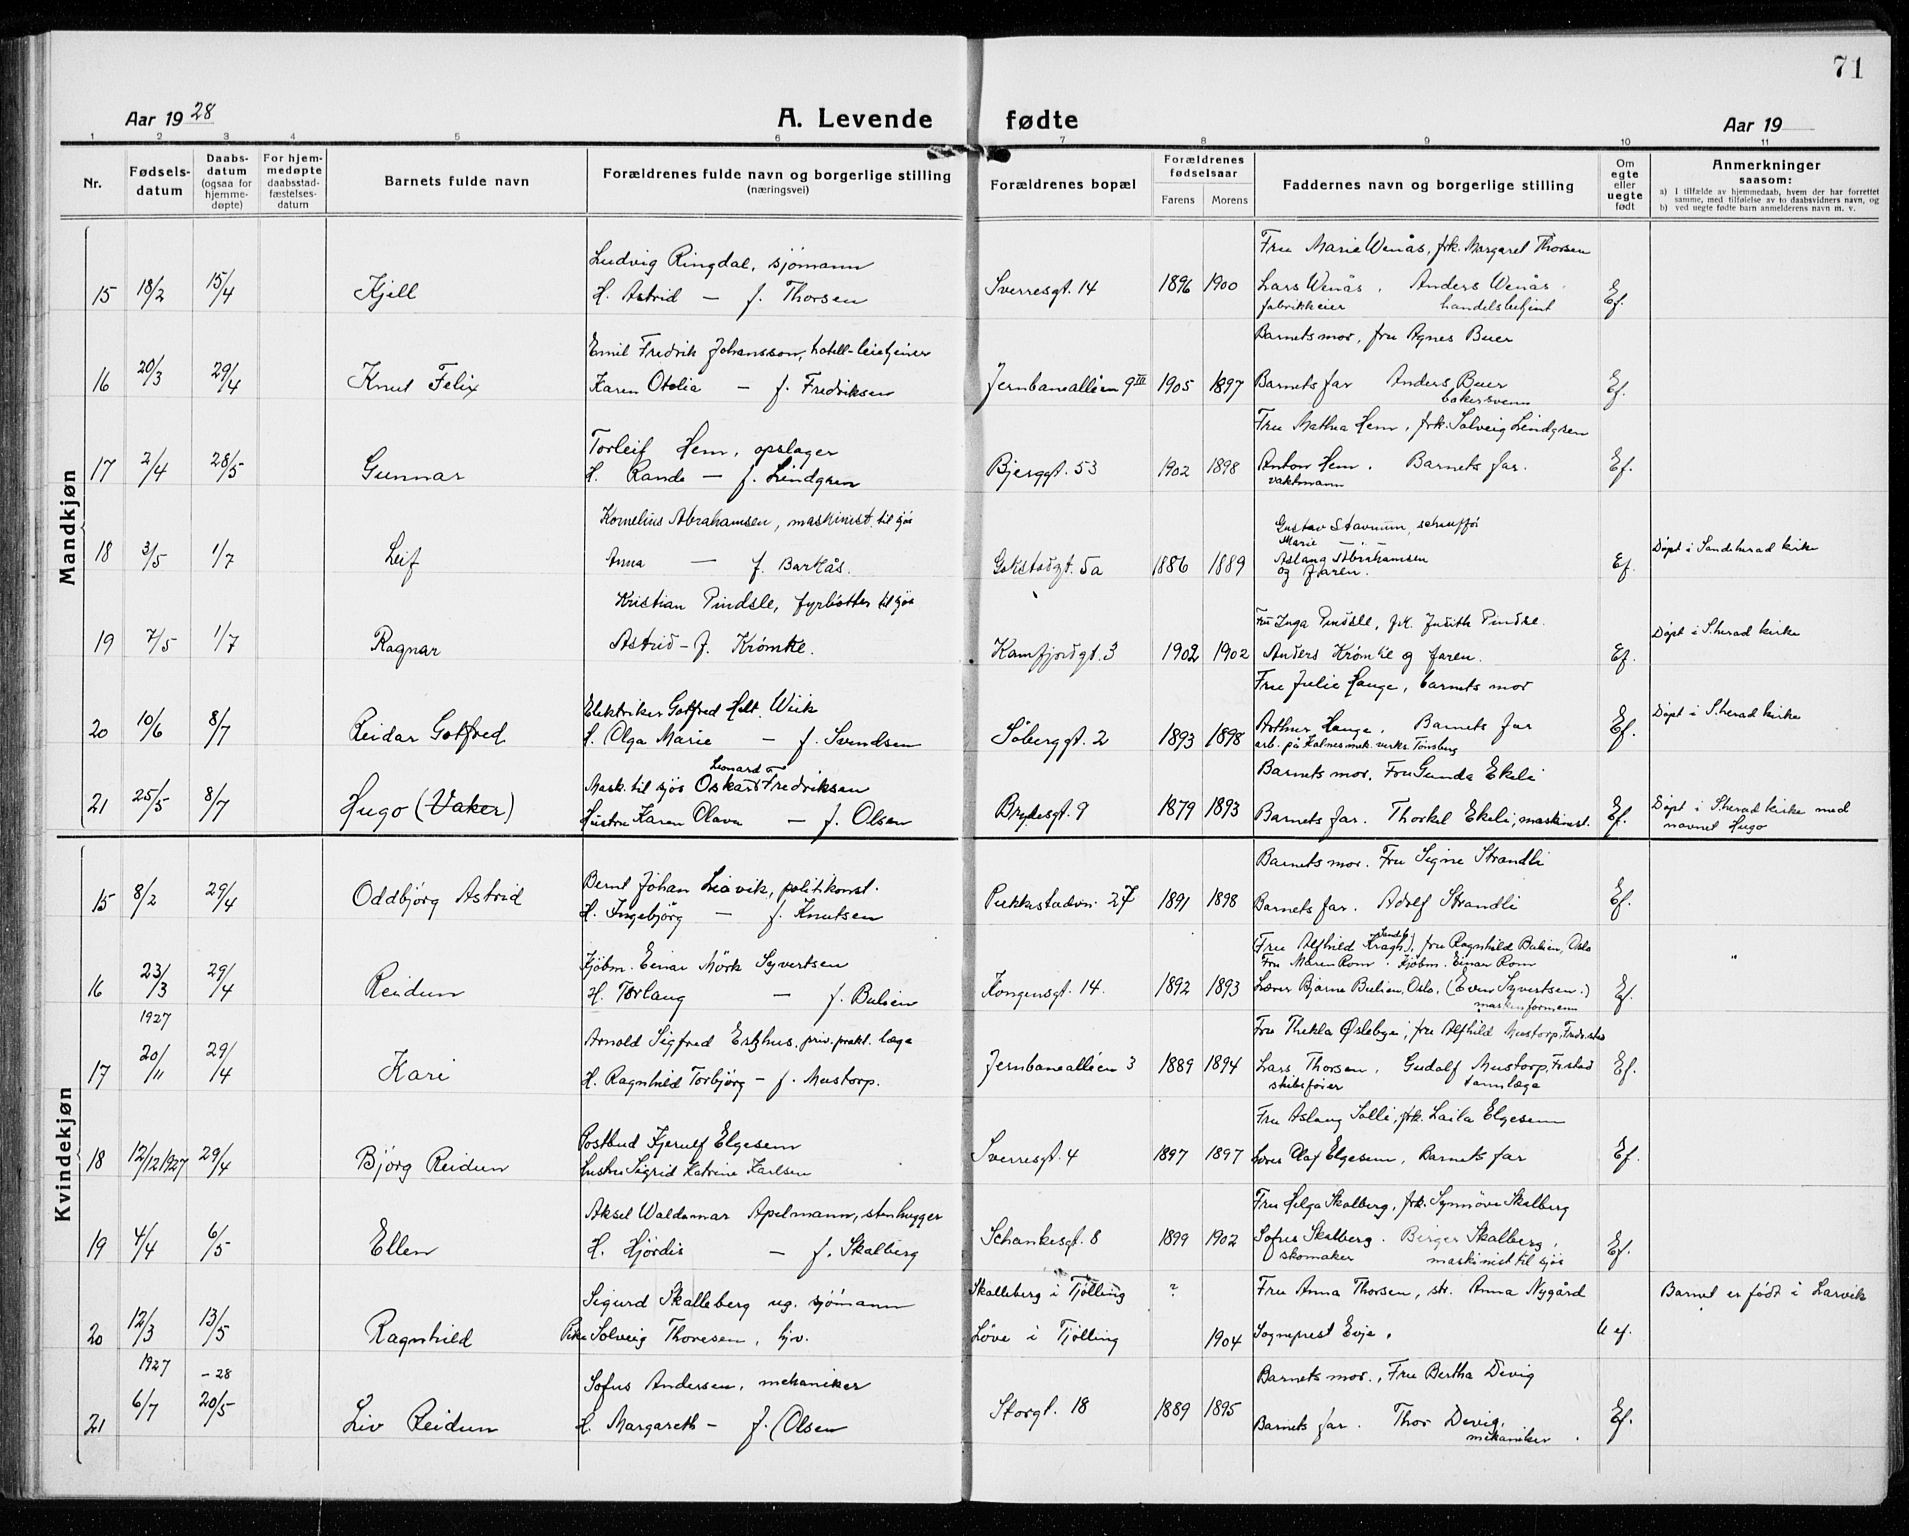 71
Aar 19 28
A. Levende fødte
Aar 19
1 2 3 4 5 6 7 8 9 10 11
Nr.
Fødsels-datum
Daabs-datum (ogsaa for hjemme-døpte)
For hjem-medøpte daabsstad-fæstelses-datum
Barnets fulde navn
Forældrenes fulde navn og borgerlige stilling (næringsvei)
Forældrenes bopæl
Forældrenes fødselsaar
Farens Morens
Faddernes navn og borgerlige stilling
Om egte eller uegte født
Anmerkninger saasom:
a) I tilfælde av hjemmedaab, hvem der har forrettet samme, med tilføielse av to daabsvidners navn, og
b) ved uegte fødte barn anmelderens navn m. v.
Mandkjøn
Ludvig Ringdal, sjømann Fru Marie Wenås, frk. Margaret Thorsen
15 18/2 15/4 Kjell H. Astrid — f. Thorsen Sverresgt. 14 1896 1900 Lars Wenås. Anders Wenås. Ef.
fabrikkeier handelsbetjent
Emil Fredrik Johansson, hotell- Barnets mor, fru Agnes Buer
16 20/3 29/4 Knut Felix Karen Otelia — f. Fredriksen Jernbanealléen 9 III 1905 1897 Barnets far Anders Buer Ef.
bakersvenn
Torleif Hem, opslager Fru Mathea Hem, frk. Solveig Lindgren
17 2/4 28/5 Gunnar H. Randi — f. Lindgren Bjerggt. 53 1902 1898 Anton Hem. Barnets far. Ef.
vaktmann
Kornelius Abrahamsen, maskinist til sjøs Gustav Stavnum, schauffør
Marie — " —
18 3/5 1/7 Leif Anna — f. Barkås. Gokstadgt. 5a 1886 1889 Aslaug Abrahamsen Ef. Døpt i Sandeherad kirke
og faren.
Kristian Pindsle, fyrbøter til sjøs Fru Inga Pindsle, frk. Judith Pindsle.
19 7/5 1/7 Ragnar Astrid — f. Krømke. Kamfjordgt. 3 1902 1902 Anders Krømke og faren. Ef. Døpt i S.herad kirke
Elektriker Gotfred Helt. Wiik Fru Julie Hauge, barnets mor
20 10/6 8/7 Reidar Gotfred H. Olga Marie — f. Svendsen Såberggt. 2 1893 1898 Arthur Hauge. Barnets far Ef. Døpt i S.herad kirke
arb. på Kalnes mek. verks. Tønsberg
Leonard
Mask. til sjøs Oskar Fredriksen Barnets mor. Fru Gunda Ekeli
21 25/5 8/7 Hugo (Vaker) Hustru Karen Olava — f. Olsen Brydesgt. 9 1879 1893 Barnets far. Thorkel Ekeli, maskinist. Ef. Døpt i S.herad kirke med
navnet Hugo
Kvindekjøn
Bernt Johan Liavik, politikonst. Barnets mor. Fru Signe Strandli
15 8/2 29/4 Oddbjørg Astrid H. Ingebjørg — f. Knutsen Pukkestadvn. 27 1891 1898 Barnets far. Adolf Strandli Ef.
Kjøbm. Einar Mørk Syvertsen (Fru Alfhild Kragh), fru Ragnhild Bulien, Oslo
Fru Maren Rom. Kjøbm. Einar Rom
16 23/3 29/4 Reidun H. Torlaug — f. Bulien Kongensgt. 14. 1892 1893 Lærer Bjarne Bulien, Oslo. (Even Syvertsen.) Ef.
maskinformann
1927 Arnold Sigfred Estzhus. priv. prakt. læge Fru Thekla Øslebye, fru Alfhild Mustorp, Fredr.stad
17 20/11 29/4 Kari H. Ragnhild Torbjørg — f. Mustorp. Jernbanealléen 3 1889 1894 Lars Thorsen. Gudolf Mustorp, Fr.stad Ef.
skibsfører tannlæge
Postbud Kjerulf Elgesem Fru Aslaug Solli, frk. Laila Elgesem
18 12/12 1927 29/4 Bjørg Reidun hustru Sigrid Katrine Karlsen Sverresgt. 4 1897 1897 Lærer Olaf Elgesem, Barnets far Ef.
Aksel Waldemar Apelmann, stenhugger Fru Helga Skalberg, frk. Synnøve Skalberg
19 4/4 6/5 Ellen H. Hjørdis — f. Skalberg Schankesgt. 8 1899 1902 Sofus Skalberg. Birger Skalberg, Ef.
skomaker maskinist til sjøs
Sigurd Skalleberg ug. sjømann Skalleberg i Tjølling ? Fru Anna Thorsen, str. Anna Nygård Barnet er født i Larvik
20 12/3 13/5 Ragnhild Pike Solveig Thoresen, tjv. Løve i Tjølling 1904 Sogneprest Evje. U ef.
1927 -28 Sofus Andersen, mekaniker Barnets mor., Fru Bertha Devig
21 6/7 20/5 Liv Reidun H. Margareth — f. Olsen Storgt. 18 1889 1895 Barnets far. Thor Devig. Ef.
mekaniker